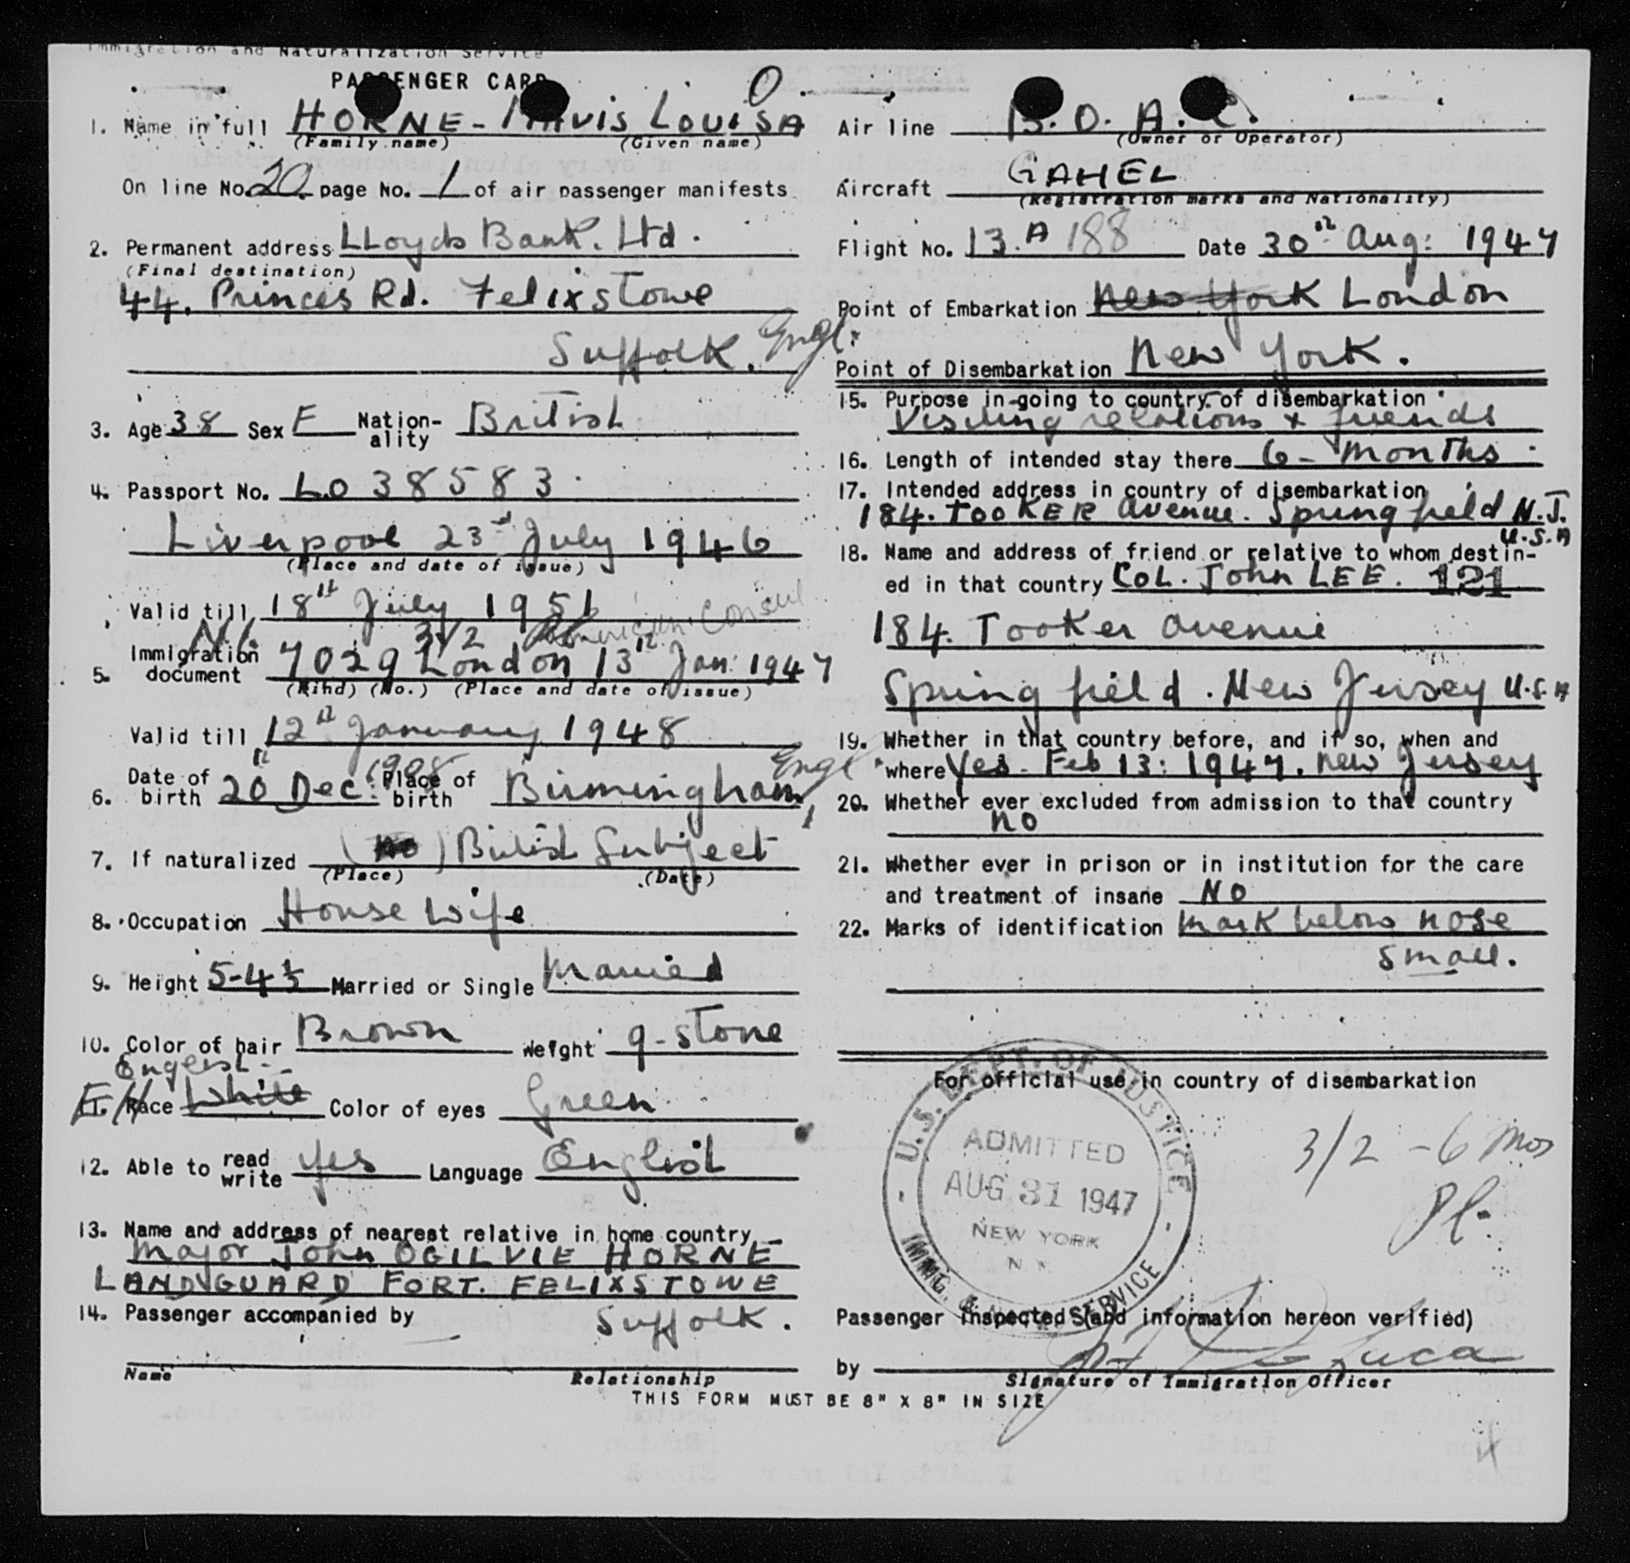 Immigration and Naturalization Service
PASSENGER CARD
1. Name in full HORNE - MAVIS LOUISA
(Family name) (Given name)
On line No. 20 page No. 1 of air passenger manifests
2. Permanent address LLoyds Bank. Ltd.
(Final destination)
44. Princes Rd. Felixstowe
Suffolk. Engl.
3. Age 38 Sex F Nation-ality British
4. Passport No. LO 38583
Liverpool 23rd July 1946
(Place and date of issue)
Valid till 18th July 1951
NI 3/2 American Consul
5. Immigration document 7029 London 13th Jan: 1947
(Kind) (No.) (Place and date of issue)
Valid till 12th January 1948
6. Date of birth 20th Dec: 1908 Place of birth Birmingham, Engl
7. If naturalized (no) British Subject
(Place) (Date)
8. Occupation House Wife
9. Height 5-4½ Married or Single Married
10. Color of hair Brown Weight 9-stone
English
11. Race White Color of eyes Green
12. Able to read write yes Language English
13. Name and address of nearest relative in home country
Major John OGILVIE HORNE
LANDGUARD FORT. FELIXSTOWE
14. Passenger accompanied by Suffolk.
Name Relationship
THIS FORM MUST BE 8" X 8" IN SIZE
O
Air line B.O.A.C.
(Owner or Operator)
Aircraft GAHEL
(Registration marks and Nationality)
Flight No. 13.A 188 Date 30th Aug: 1947
Point of Embarkation New York London
Point of Disembarkation New York.
15. Purpose in going to country of disembarkation
Visiting relations & friends
16. Length of intended stay there 6 - months
17. Intended address in country of disembarkation
184. TOOKER avenue. Springfield N.J.
U.S.A
18. Name and address of friend or relative to whom destin-
ed in that country COL. John LEE. 121
184. Tooker avenue
Springfield. New Jersey U.S.A
19. Whether in that country before, and if so, when and
where Yes. Feb 13: 1947. New Jersey
20. Whether ever excluded from admission to that country
no
21. Whether ever in prison or in institution for the care
and treatment of insane NO
22. Marks of identification mark below nose
small.
For official use in country of disembarkation
U.S. DEPT. OF JUSTICE
ADMITTED
AUG 31 1947
NEW YORK
N Y
IMMG. & SERVICE
3/2 - 6 mos
Passenger inspected (and information hereon verified)
by
Signature of Immigration Officer
4